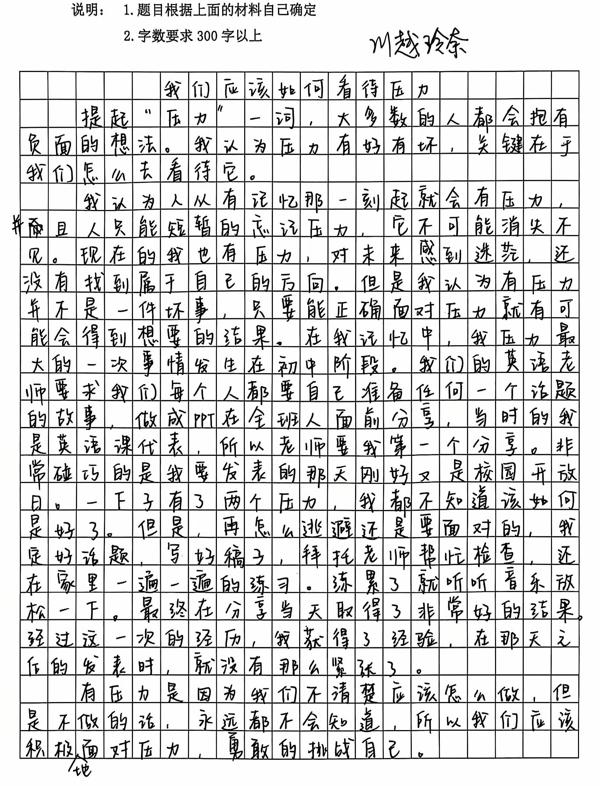 说明： 1.题目根据上面的材料自己确定
2.字数要求 300 字以上
川越玲奈
我们应该如何看待压力
提起“压力”一词，大多数的人都会抱有
负面的想法。我认为压力有好有坏，关键在于
我们怎么去看待它。
我认为人从有记忆那一刻起就会有压力，
并而且人只能短暂的忘记压力，它不可能消失不
见。现在的我也有压力，对未来感到迷茫，还
没有找到属于自己的方向。但是我认为有压力
并不是一件坏事，只要能正确面对压力就有可
能会得到想要的结果。在我记忆中，我压力最
大的一次事情发生在初中阶段。我们的英语老
师要求我们每个人都要自己准备任何一个话题
的故事，做成PPT在全班人面前分享，当时的我
是英语课代表，所以老师要我第一个分享。非
常碰巧的是我要发表的那天刚好又是校园开放
日。一下子有了两个压力，我都不知道该如何
是好了。但是，再怎么逃避还是要面对的，我
定好话题，写好稿子，拜托老师帮忙检查，还
在家里一遍一遍的练习。练累了就听听音乐放
松一下。最终在分享当天取得了非常好的结果。
经过这一次的经历，我获得了经验，在那天之
后的发表时，就没有那么紧张了。
有压力是因为我们不清楚应该怎么做，但
是不做的话，永远都不会知道，所以我们应该
积极地面对压力，勇敢的挑战自己。